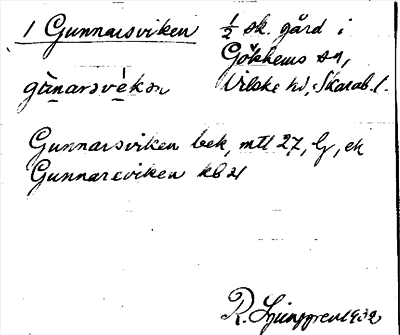 1 Gunnarsviken 1/2 sk. gård i
Gökhems sn,
gùnarsvékən Vilske hd, Skarab. l.
Gunnarsviken bek, mtl 27, lj, ek
Gunnareviken kb 21
R. Ljunggren 1932